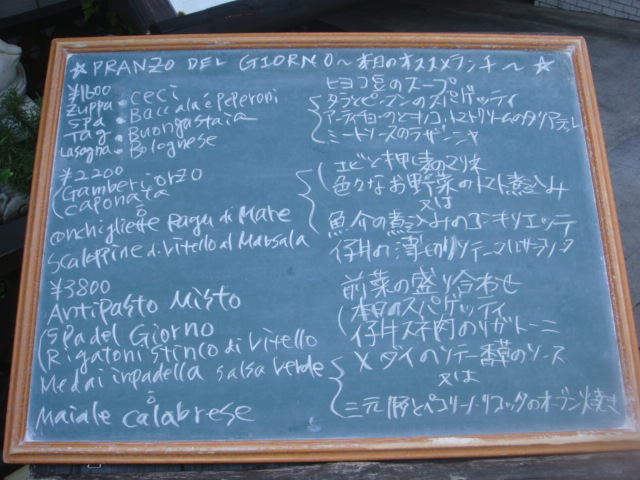 ☆ PRANZO DEL GIORNO～本日のオススメランチ～ ☆
¥1600
Zuppa・ceci ヒヨコ豆のスープ
Spa・Baccala e Peperoni タラとピーマンのスパゲッティ
Tag・Buongustaia アーティチョークときのこ、トマトクリームのタリアテッレ
Lasagna・Bolognese ミートソースのラザーニャ
¥2200
Gamberi orzo エビと押し麦のマリネ
Caponata 色々なお野菜のトマト煮込み
o 又は
Conchigliette Ragu di Mare 魚介の煮込みのコンキリエッテ
Scaloppine di Vitello al Marsala 仔牛の薄切りソテー マルサラソース
¥3800
Antipasto Misto 前菜の盛り合わせ
Spa del Giorno 本日のスパゲッティ
Rigatoni stinco di Vitello 仔牛スネ肉のリガトーニ
Medai inpadella salsa verde メダイのソテー 香草のソース
o 又は
Maiale calabrese 三元豚とペコリーノ、リコッタのオーブン焼き